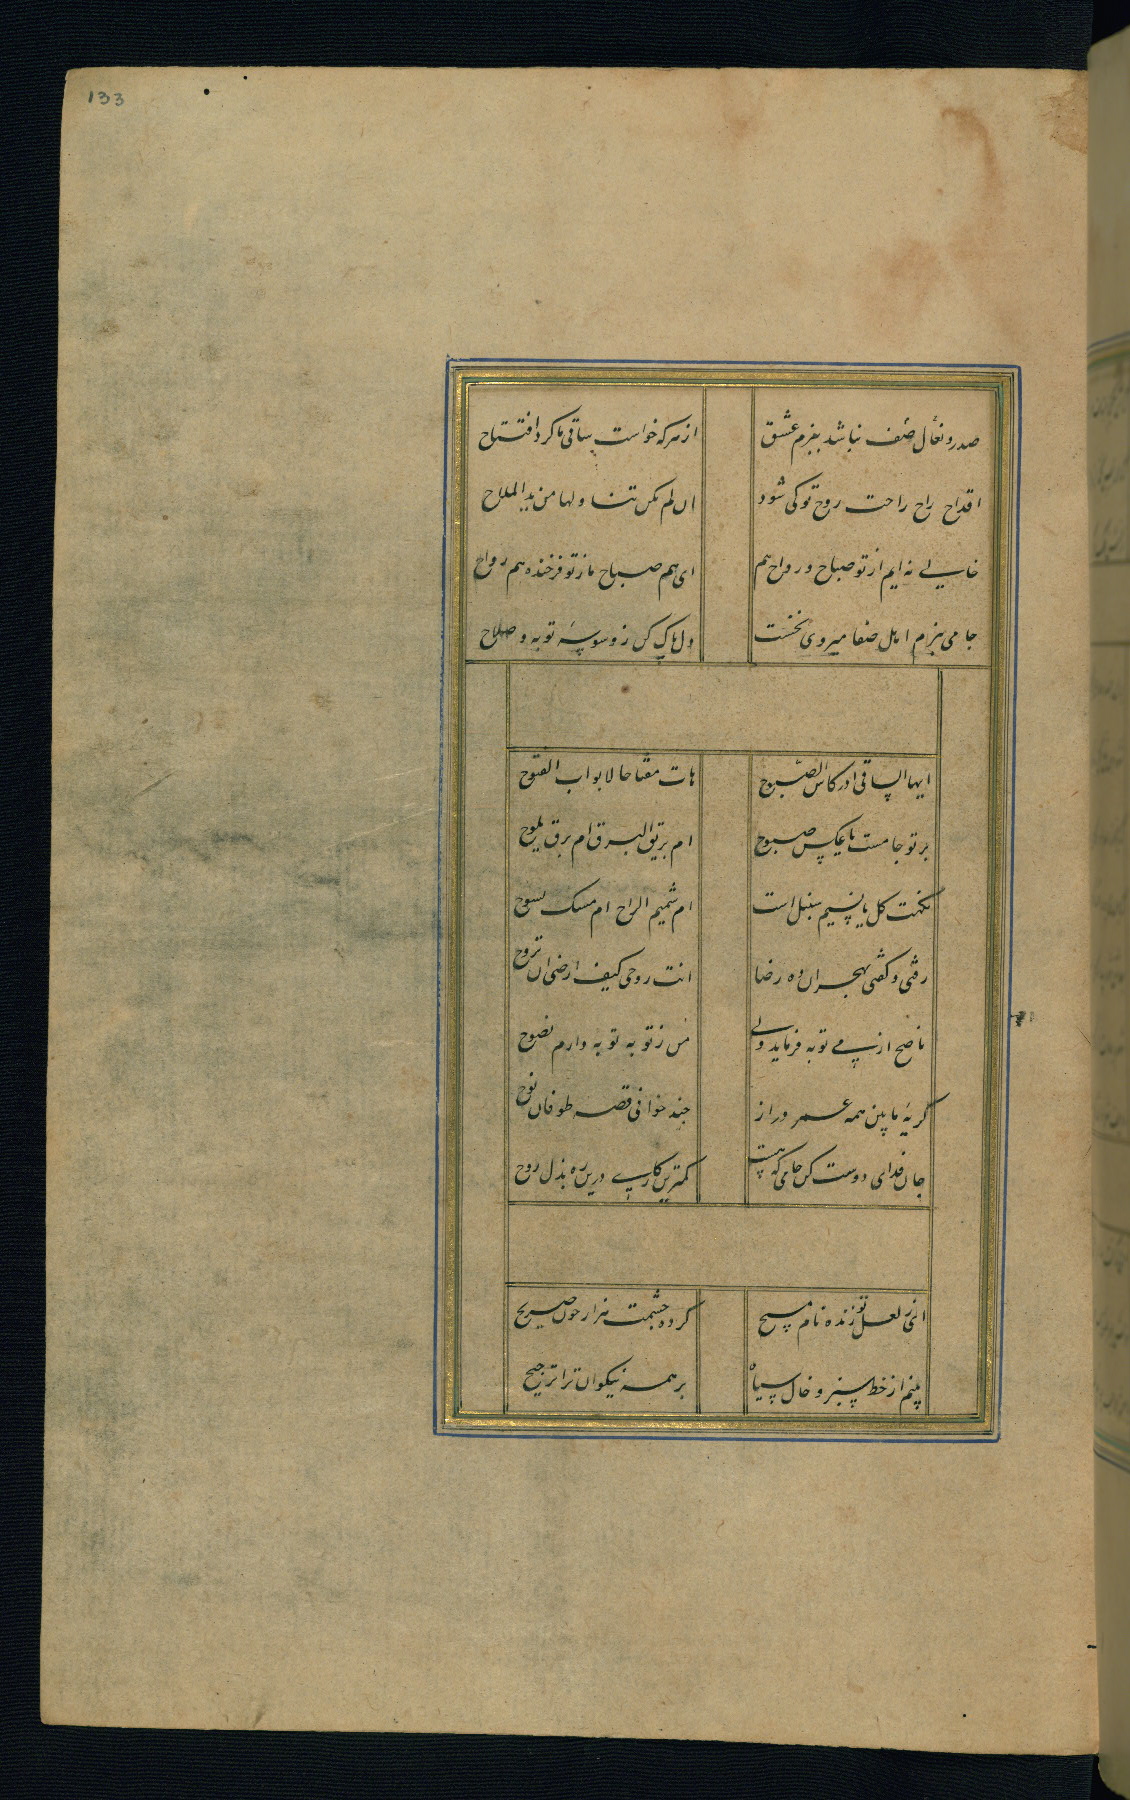 133
صدر و نعال صف نباشد ببزم عشق
از هر که خواست ساقی ما کرد افتتاح
اقداح راح راحت روح تو کی شود
ان لم یکن تناولها من ید الملاح
خالی نه ایم از تو صباح و رواح هم
ای هم صباح ما ز تو فرخنده هم رواح
جامی ببزم اهل صفا میروی نخست
دل پاک کن ز وسوسهٔ توبه و صلاح
ایها الساقی ادر کاس الصبوح
هات مفتاحا لابواب الفتوح
پرتو جامست یا عکس صبوح
ام بریق البرق ام برق یلوح
نکهت کل یا نسیم سنبل است
ام شمیم الراح ام مسک یسوح
رفتی و گفتی بهجران ده رضا
انت روحی کیف ارضی ان تروح
ناصح از می توبه فرماید ولی
من ز توبه توبه دارم نصوح
گریهٔ ما بین همه عمر دراز
چند خوانی قصهٔ طوفان نوح
جان فدای دوست کن جامی که هست
کمترین کاری درین ره بذل روح
ای ز لعل تو زنده نام مسیح
کرده چشمت هزار خون صریح
بینم از خط سبز و خال سیاه
بر همه نیکوان ترا ترجیح